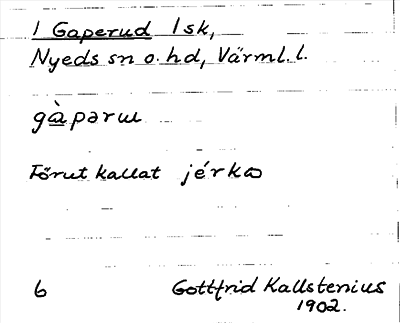 1 Gaperud 1 sk,
Nyeds sn o. hd, Värml. l.
gàparul
Förut kallat jérka
6 Gottfrid Kallstenius
1902.